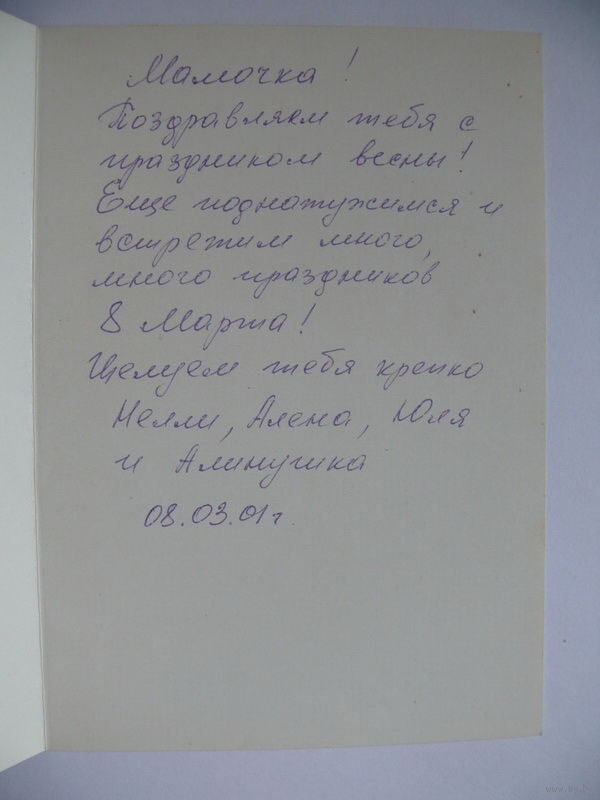 Мамочка!
Поздравляем тебя с
праздником весны!
Еще поднатужимся и
встретим много,
много праздников
8 Марта!
Целуем тебя крепко
Нелли, Алена, Юля
и Алинушка
08.03.01г.